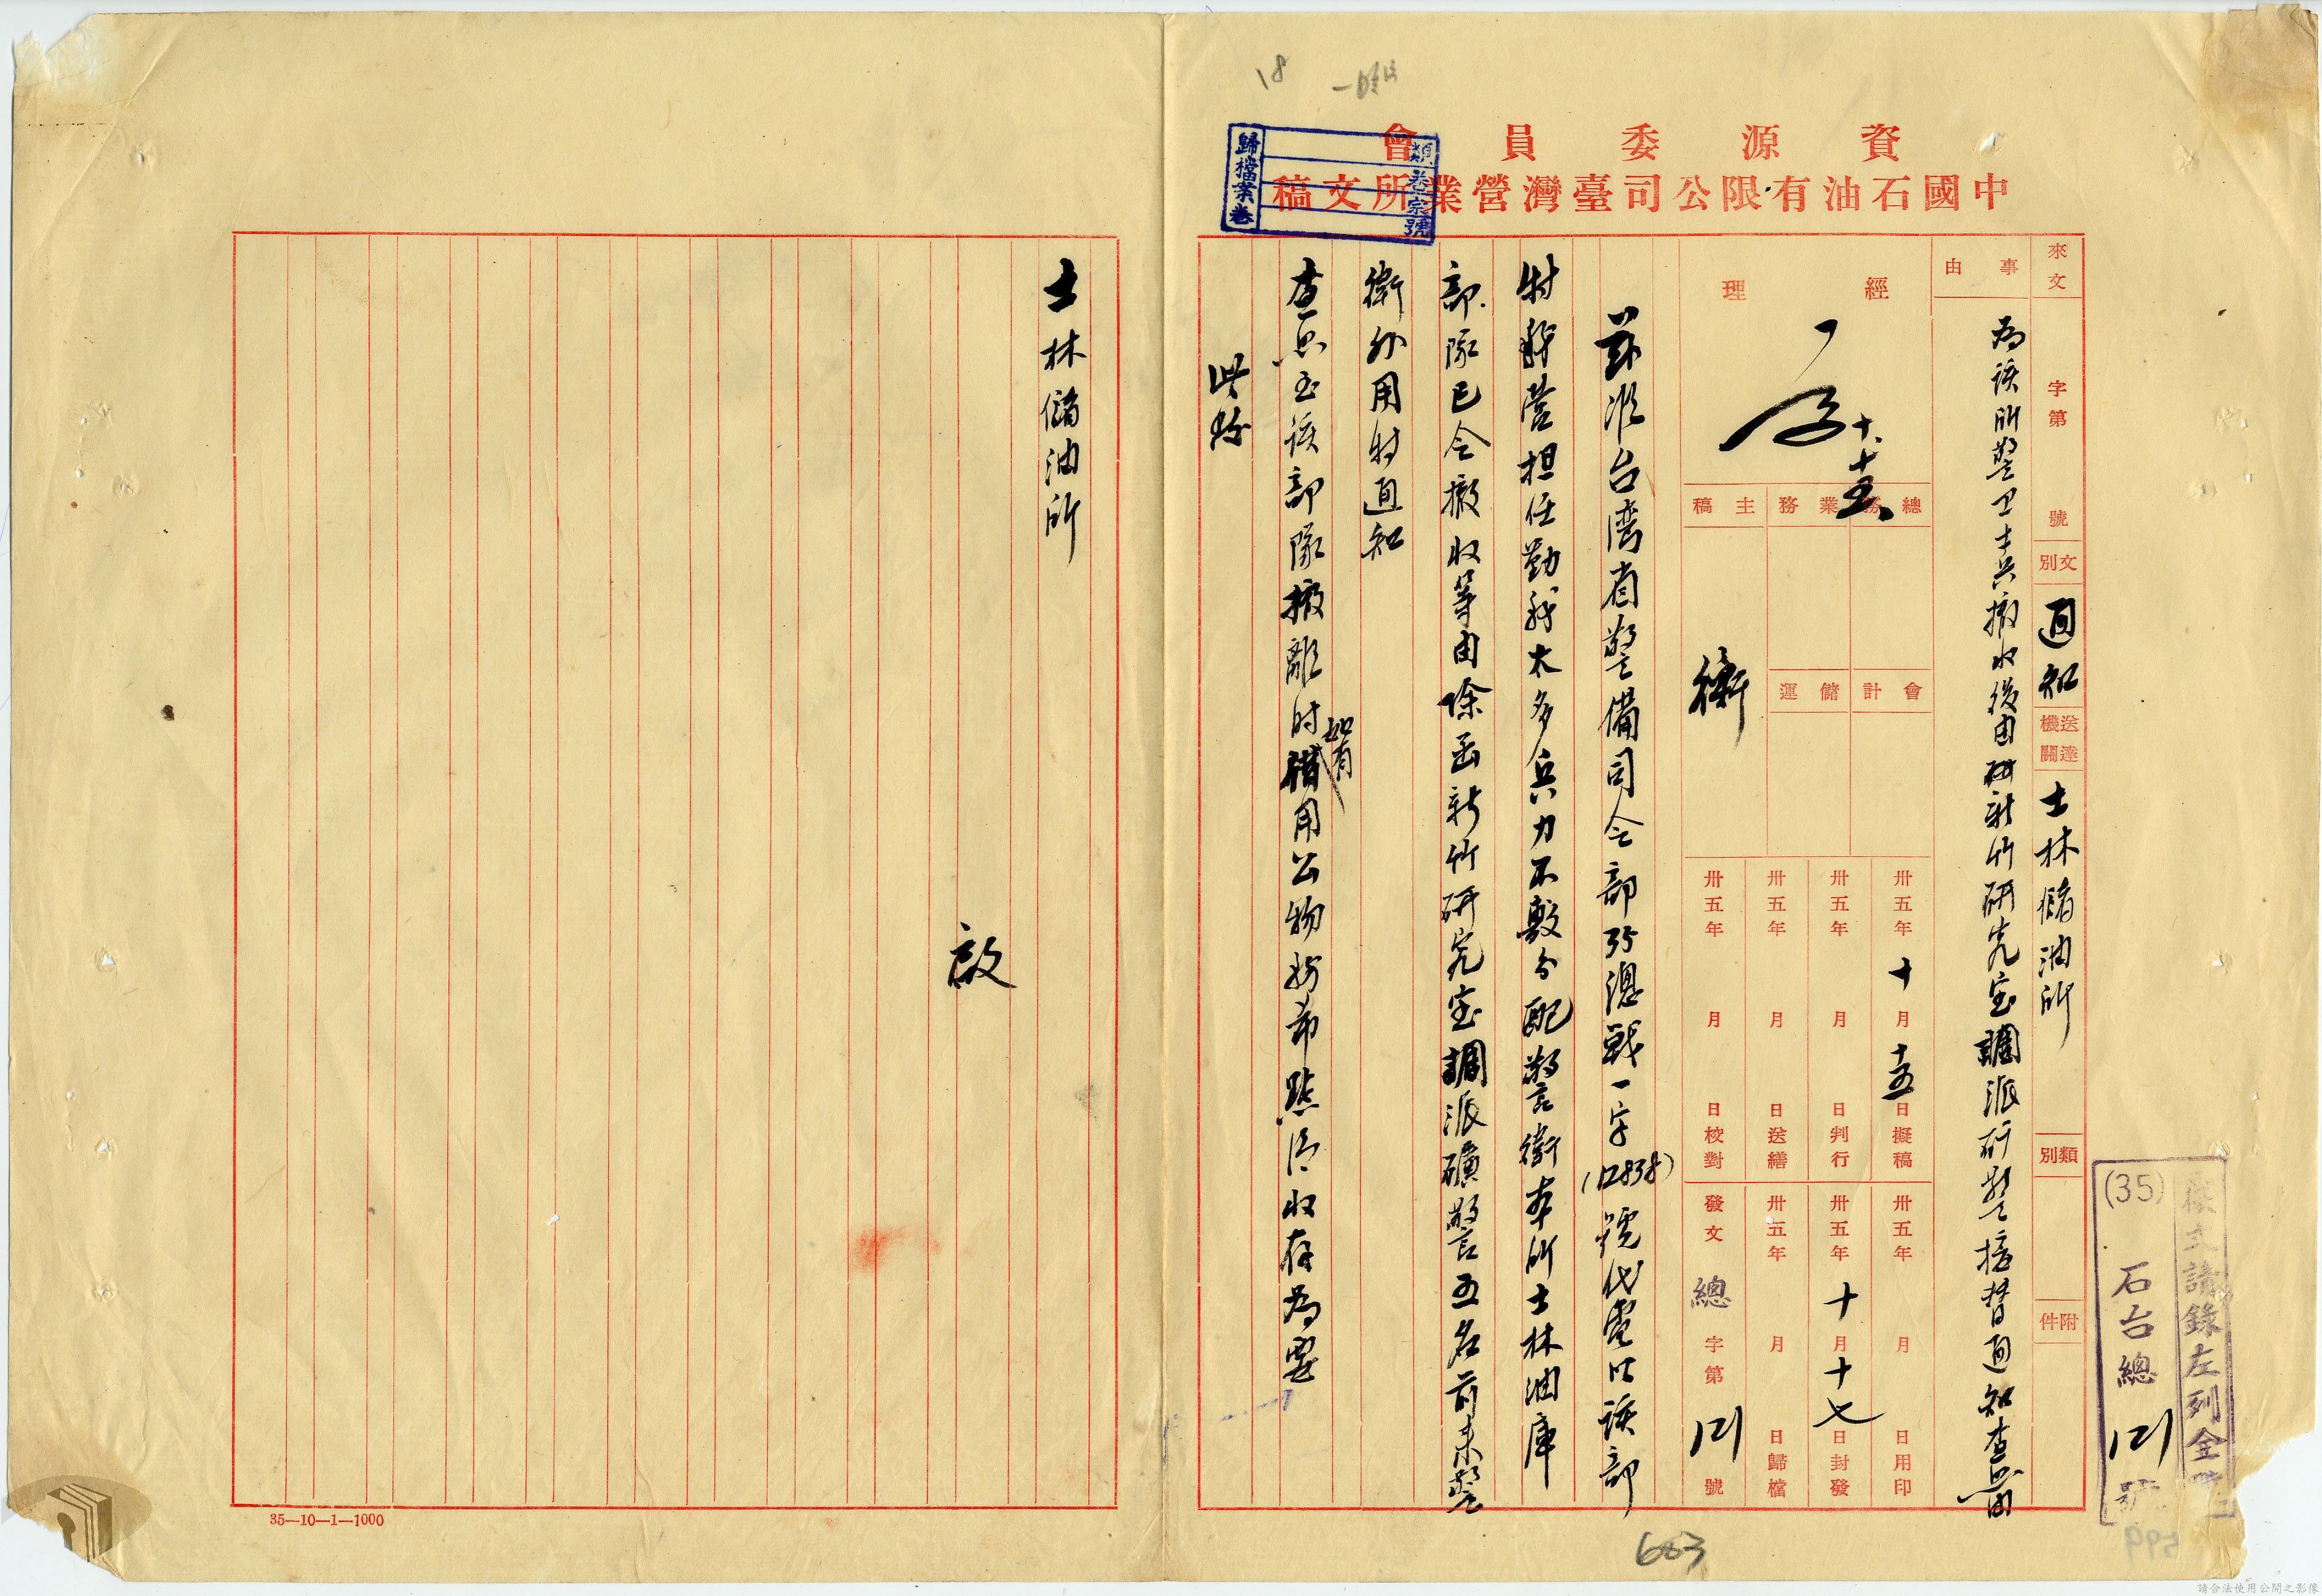 資源委員會
中國石油有限公司臺灣營業所文稿
類卷宗號
歸檔案卷
來文 字第 號
文別 通知
送達機關 士林儲油所
類別
附件
事由 為該所警卫士兵撤收後由新竹研究室調派矿警接替通知查照由
經理
十.十五
總務 業務 主稿
會計 儲運
衛
卅五年十月十五日擬稿
卅五年 月 日判行
卅五年 月 日送繕
卅五年 月 日校對
卅五年 月 日用印
卅五年十月十七日封發
卅五年 月 日歸檔
發文 總字第 121 號
茲准台湾省警備司令部35總戰一字(12838)號代電以該部
特務營担任勤務太多兵力不敷分配警衛本所士林油庫
部隊已令撤收等由除函新竹研究室調派礦警五名前來警
衛外用特通知
查照至該部隊撤離時如有借用公物均希點清收存為要
此致
士林儲油所
啟
35—10—1—1000
(35) 石台總 121 號
復文請錄左列全號
18
603
599
請合法使用公開之影像